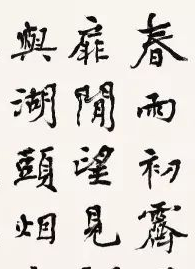 春雨初霽
扉閒望見
與湖頭烟